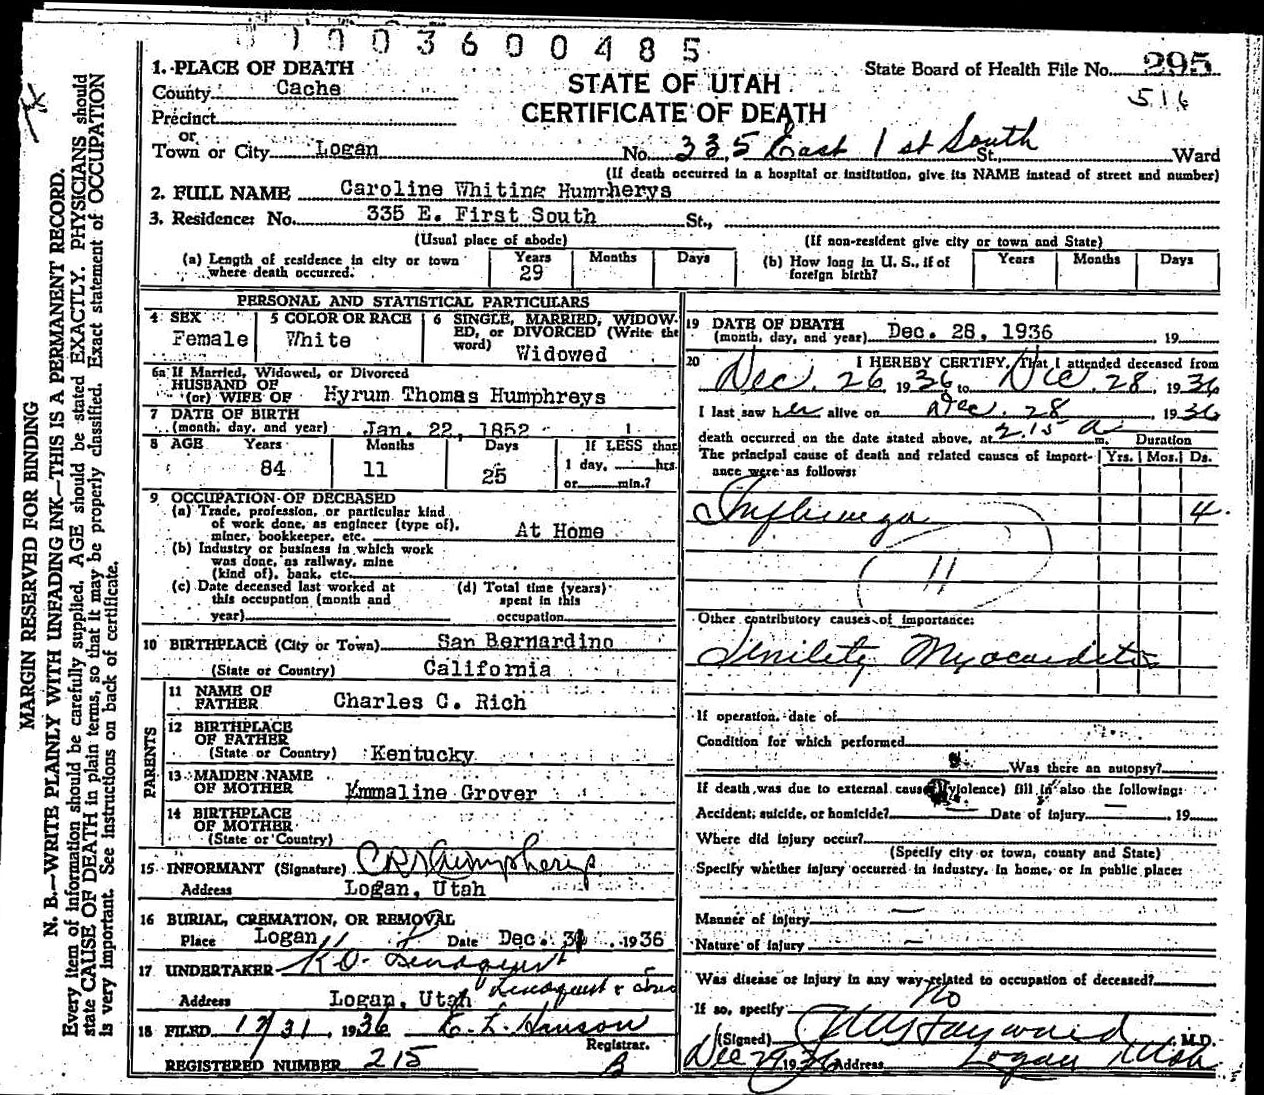 1003600485
1. PLACE OF DEATH
County Cache
Precinct
or
Town or City Logan
STATE OF UTAH
CERTIFICATE OF DEATH
State Board of Health File No. 295
516
No. 335 East 1st South St., Ward
(If death occurred in a hospital or institution, give its NAME instead of street and number)
2. FULL NAME Caroline Whiting Humpherys
3. Residence: No. 335 E. First South St.,
(Usual place of abode) (If non-resident give city or town and State)
(a) Length of residence in city or town where death occurred. Years 29 Months Days
(b) How long in U. S., if of foreign birth? Years Months Days
PERSONAL AND STATISTICAL PARTICULARS
4 SEX Female
5 COLOR OR RACE White
6 SINGLE, MARRIED, WIDOWED, or DIVORCED (Write the word) Widowed
6a If Married, Widowed, or Divorced
HUSBAND OF
(or) WIFE OF Hyrum Thomas Humphreys
7 DATE OF BIRTH
(month, day, and year) Jan. 22, 1852
8 AGE Years 84 Months 11 Days 25 If LESS than 1 day, hrs. or min.?
9 OCCUPATION OF DECEASED
(a) Trade, profession, or particular kind
of work done, as engineer (type of),
miner, bookkeeper, etc. At Home
(b) Industry or business in which work
was done, as railway, mine
(kind of), bank, etc.
(c) Date deceased last worked at
this occupation (month and
year)
(d) Total time (years)
spent in this
occupation.
10 BIRTHPLACE (City or Town) San Bernardino
(State or Country) California
PARENTS
11 NAME OF FATHER Charles C. Rich
12 BIRTHPLACE
OF FATHER
(State or Country) Kentucky
13 MAIDEN NAME
OF MOTHER Emmaline Grover
14 BIRTHPLACE
OF MOTHER
(State or Country)
15 INFORMANT (Signature) C R Humpherys
Address Logan, Utah
16 BURIAL, CREMATION, OR REMOVAL
Place Logan Date Dec. 31 1936
17 UNDERTAKER K O Lindquist
Lindquist & Sons
Address Logan, Utah
18 FILED 12/31, 1936 E. L. Hanson
Registrar.
REGISTERED NUMBER 215 B
19 DATE OF DEATH
(month, day, and year) Dec. 28, 1936 19
20 I HEREBY CERTIFY, That I attended deceased from
Dec. 26 1936 to Dec. 28, 1936
I last saw her alive on Dec. 28 1936
death occurred on the date stated above, at 2.15 a m. Duration
The principal cause of death and related causes of importance were as follows: Yrs. Mos. Ds.
Influenza 4.
11
Other contributory causes of importance:
Senility Myocarditis
If operation, date of
Condition for which performed
Was there an autopsy?
If death was due to external causes (violence) fill in also the following:
Accident, suicide, or homicide? Date of injury 19
Where did injury occur?
(Specify city or town, county and State)
Specify whether injury occurred in industry, in home, or in public place:
Manner of injury —
Nature of injury —
Was disease or injury in any way related to occupation of deceased?
No
If so, specify
(Signed) Hayward M.D.
Dec 29 1936 Address Logan Utah
MARGIN RESERVED FOR BINDING
N. B.—WRITE PLAINLY WITH UNFADING INK—THIS IS A PERMANENT RECORD.
Every item of information should be carefully supplied. AGE should be stated EXACTLY. PHYSICIANS should
state CAUSE OF DEATH in plain terms, so that it may be properly classified. Exact statement of OCCUPATION
is very important. See instructions on back of certificate.